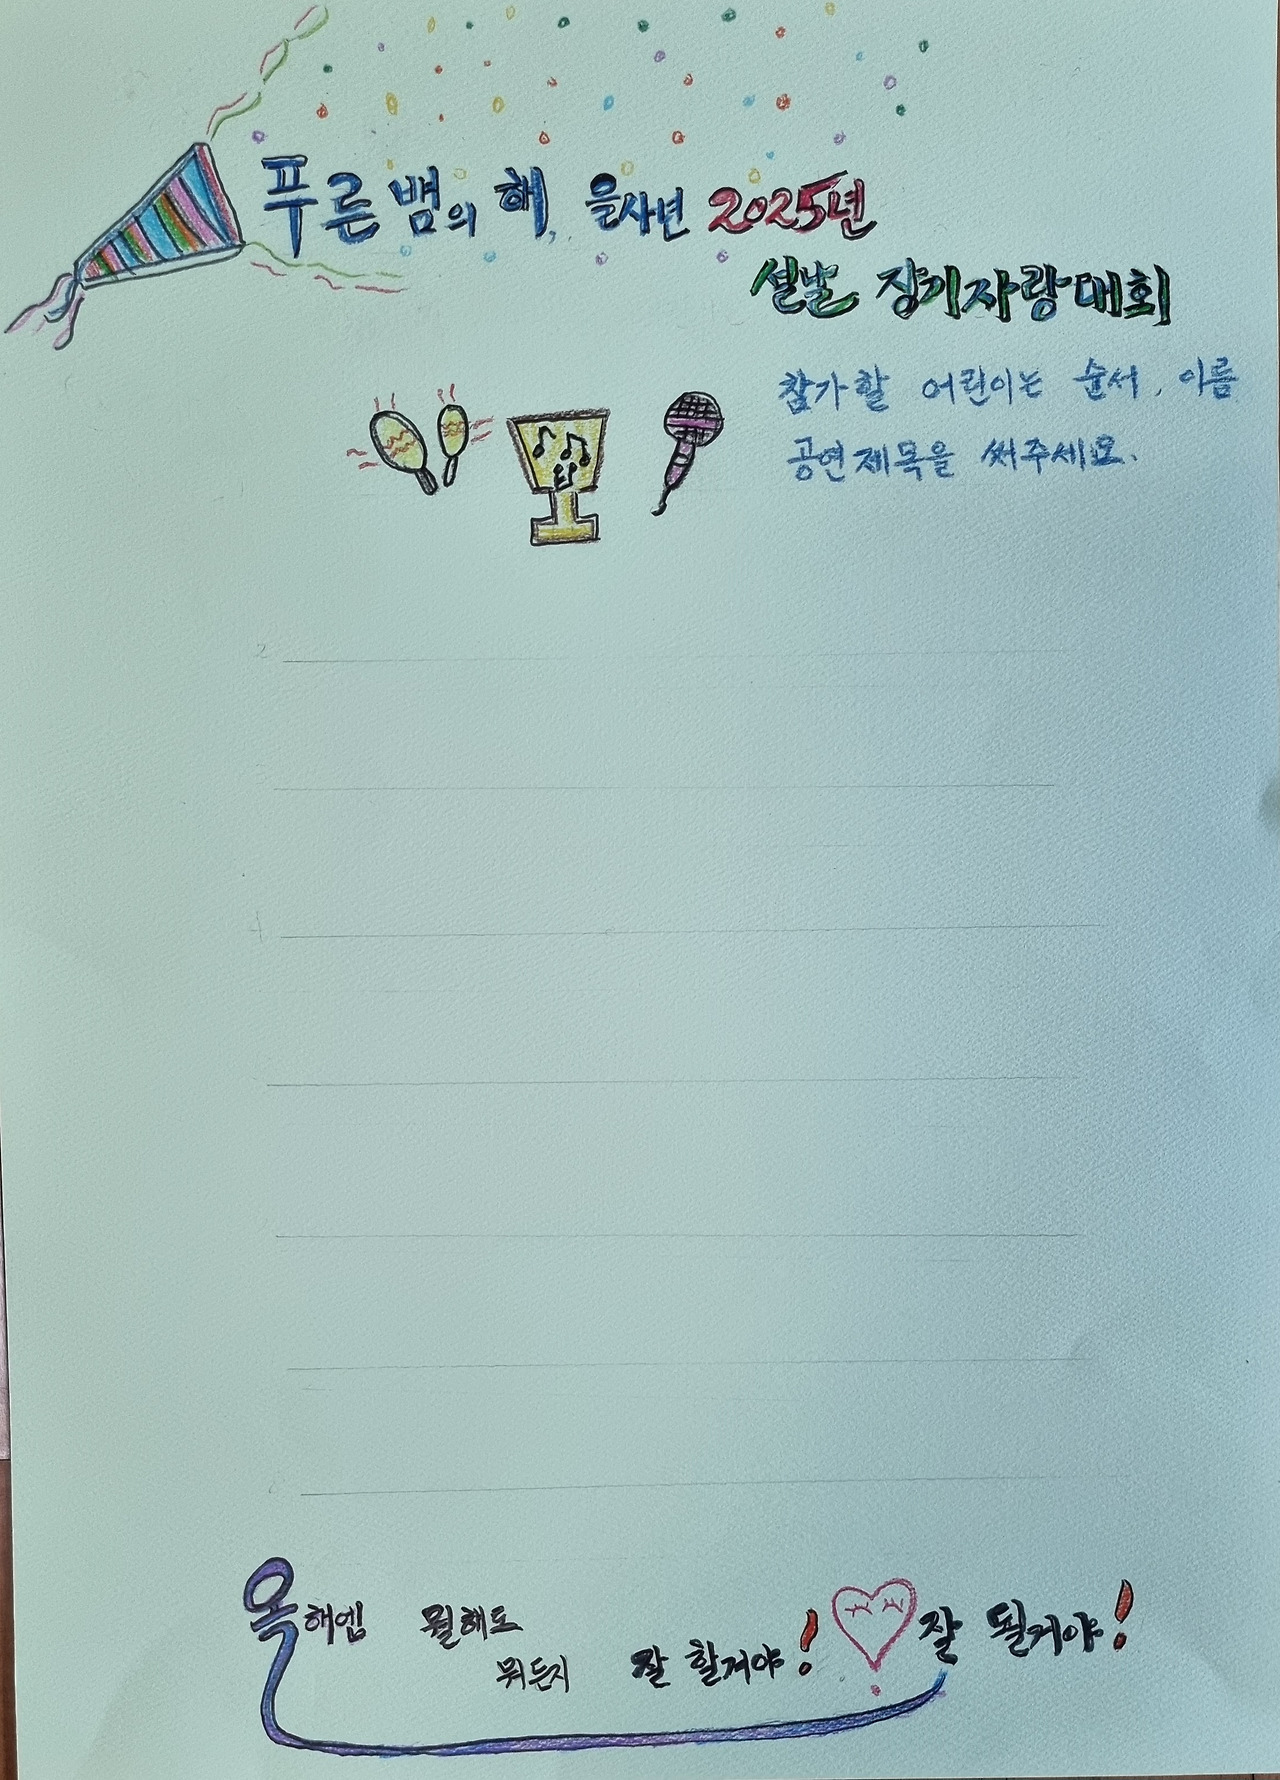 푸른 뱀의 해, 을사년 2025년
설날 장기자랑대회
참가할 어린이는 순서, 이름
공연제목을 써주세요.
2
올해엔 뭘해도
뭐든지 잘 할거야! 잘 될거야!